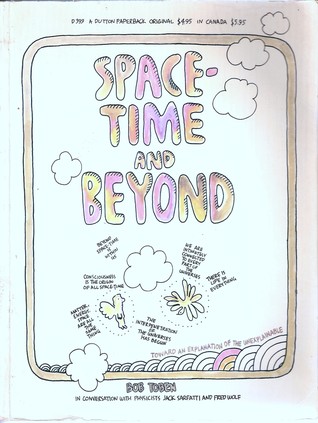 D 399 A DUTTON PAPERBACK ORIGINAL $4.95 IN CANADA $5.95
SPACE-
TIME
AND
BEYOND
BEYOND
SPACE-TIME
IS
WITHIN
US
WE ARE
INTIMATELY
CONNECTED
TO EVERY
PART OF
THE
UNIVERSES
CONSCIOUSNESS
IS THE ORIGIN
OF ALL SPACE-TIME
THERE IS
LIFE IN
EVERYTHING
MATTER,
ENERGY,
SPACE
ARE ALL
THE
SAME
THING
THE
INTERPENETRATION
OF
THE UNIVERSES
HAS BEGUN
TOWARD AN EXPLANATION OF THE UNEXPLAINABLE
BOB TOBEN
IN CONVERSATION WITH PHYSICISTS JACK SARFATTI AND FRED WOLF